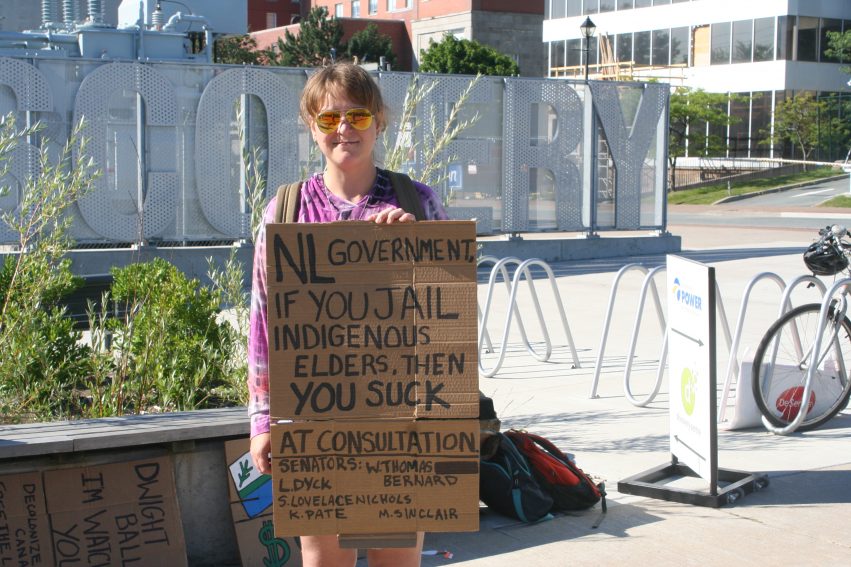 NL GOVERNMENT,
IF YOU JAIL
INDIGENOUS
ELDERS, THEN
YOU SUCK
AT CONSULTATION
SENATORS: W. THOMAS
L. DYCK BERNARD
S. LOVELACE NICHOLS
K. PATE M. SINCLAIR
DECOLONIZE
DWIGHT
BALL
I'M WATCH
YOU
$
POWER
DeSe